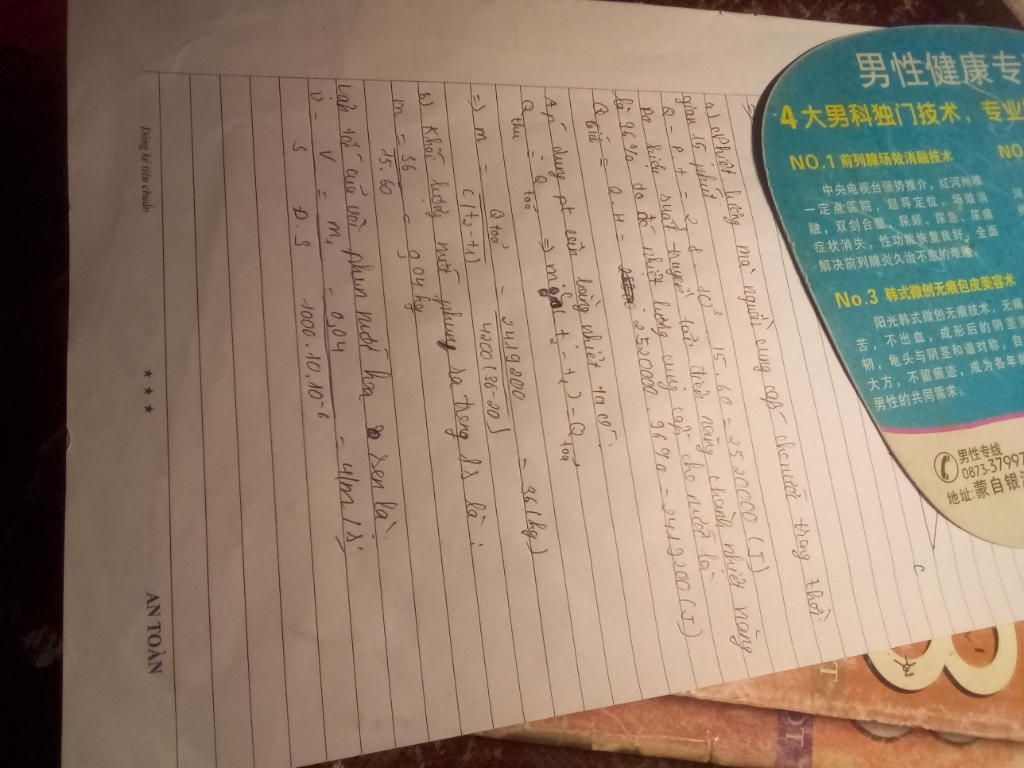 a) Nhiệt lượng mà nguồn cung cấp cho nước trong thời
gian 15 phút
Q = P.t = 2,8.10³.15.60 = 2520000 (J)
Do hiệu suất truyền từ điện năng thành nhiệt năng
là 96% do đó nhiệt lượng cung cấp cho nước là
Q = Q.H = 2520000.96% = 2419200 (J)
Áp dụng pt cân bằng nhiệt ta có:
Q thu = Q toả => m.c(t₂-t₁) = Q toả
=> m = Q toả / c(t₂-t₁) = 2419200 / 4200(36-20) = 36 (kg)
b) Khối lượng nước phun ra trong 1s là:
m = 36 / 15.60 = 0,04 kg
Vận tốc của vòi phun nước hoa sen là:
v = V / S = m₁ / D.S = 0,04 / 1000.10.10⁻⁶ = 4 m/s
Dòng kẻ tiêu chuẩn
★ ★ ★
AN TOÀN
男性健康专
4大男科独门技术，专业
NO.1 前列腺场效消融技术
中央电视台强势推介，红河州唯
一定点医院，超导定位，场效消
融，双剑合璧，尿频、尿急、尿痛
症状消失，性功能恢复良好，全面
解决前列腺炎久治不愈的难题。
NO.
No.3 韩式微创无痕包皮美容术
阳光韩式微创无痕技术，无痛
苦，不出血，成形后的阴茎
韧，龟头与阴茎和谐对称，自
大方，不留痕迹，成为各年龄
男性的共同需求。
男性专线
0873-37997
地址:蒙自银